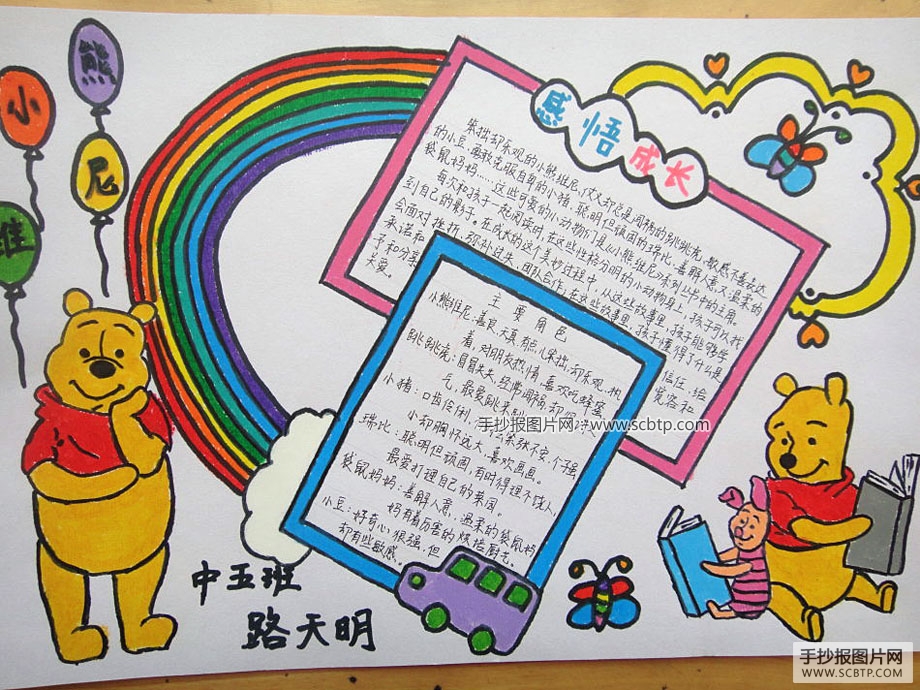 小
熊
维
尼
感悟成长
笨拙却乐观的小熊维尼,仗义却总是闯祸的跳跳虎,敏感不善表达
的小豆,勇敢克服自卑的小猪,聪明但顽固的瑞比,善解人意又温柔的
袋鼠妈妈……这些可爱的小动物们是《小熊维尼》系列丛书中的主角。
每次和孩子一起阅读时,在这些性格分明的小动物身上,孩子可以找
到自己的影子。在成长的这个美妙过程中,从这些故事里,孩子能够学
会面对挫折,弥补过失,团队合作,在这些故事里,孩子懂得了什么是
承诺和
信任,给
予和分享
宽容和
关爱。
主要角色
小熊维尼:善良天真有点儿笨拙,却乐观,执
着,对朋友热情,喜欢吃蜂蜜
跳跳虎:冒冒失失,经常闯祸,却
气,最爱跳来跳
小猪:口齿伶俐,
么紧张不安,个子虽
小却胸怀远大,喜欢画画。
瑞比:聪明但顽固,有时得理不饶人,
最爱打理自己的菜园。
袋鼠妈妈:善解人意,温柔的袋鼠妈
妈有着厉害的烘焙厨艺。
小豆:好奇心很强,但
却有些敏感。
中五班
路天明
手抄报图片网://www.scbtp.com
手抄报图片网
WWW.SCBTP.COM